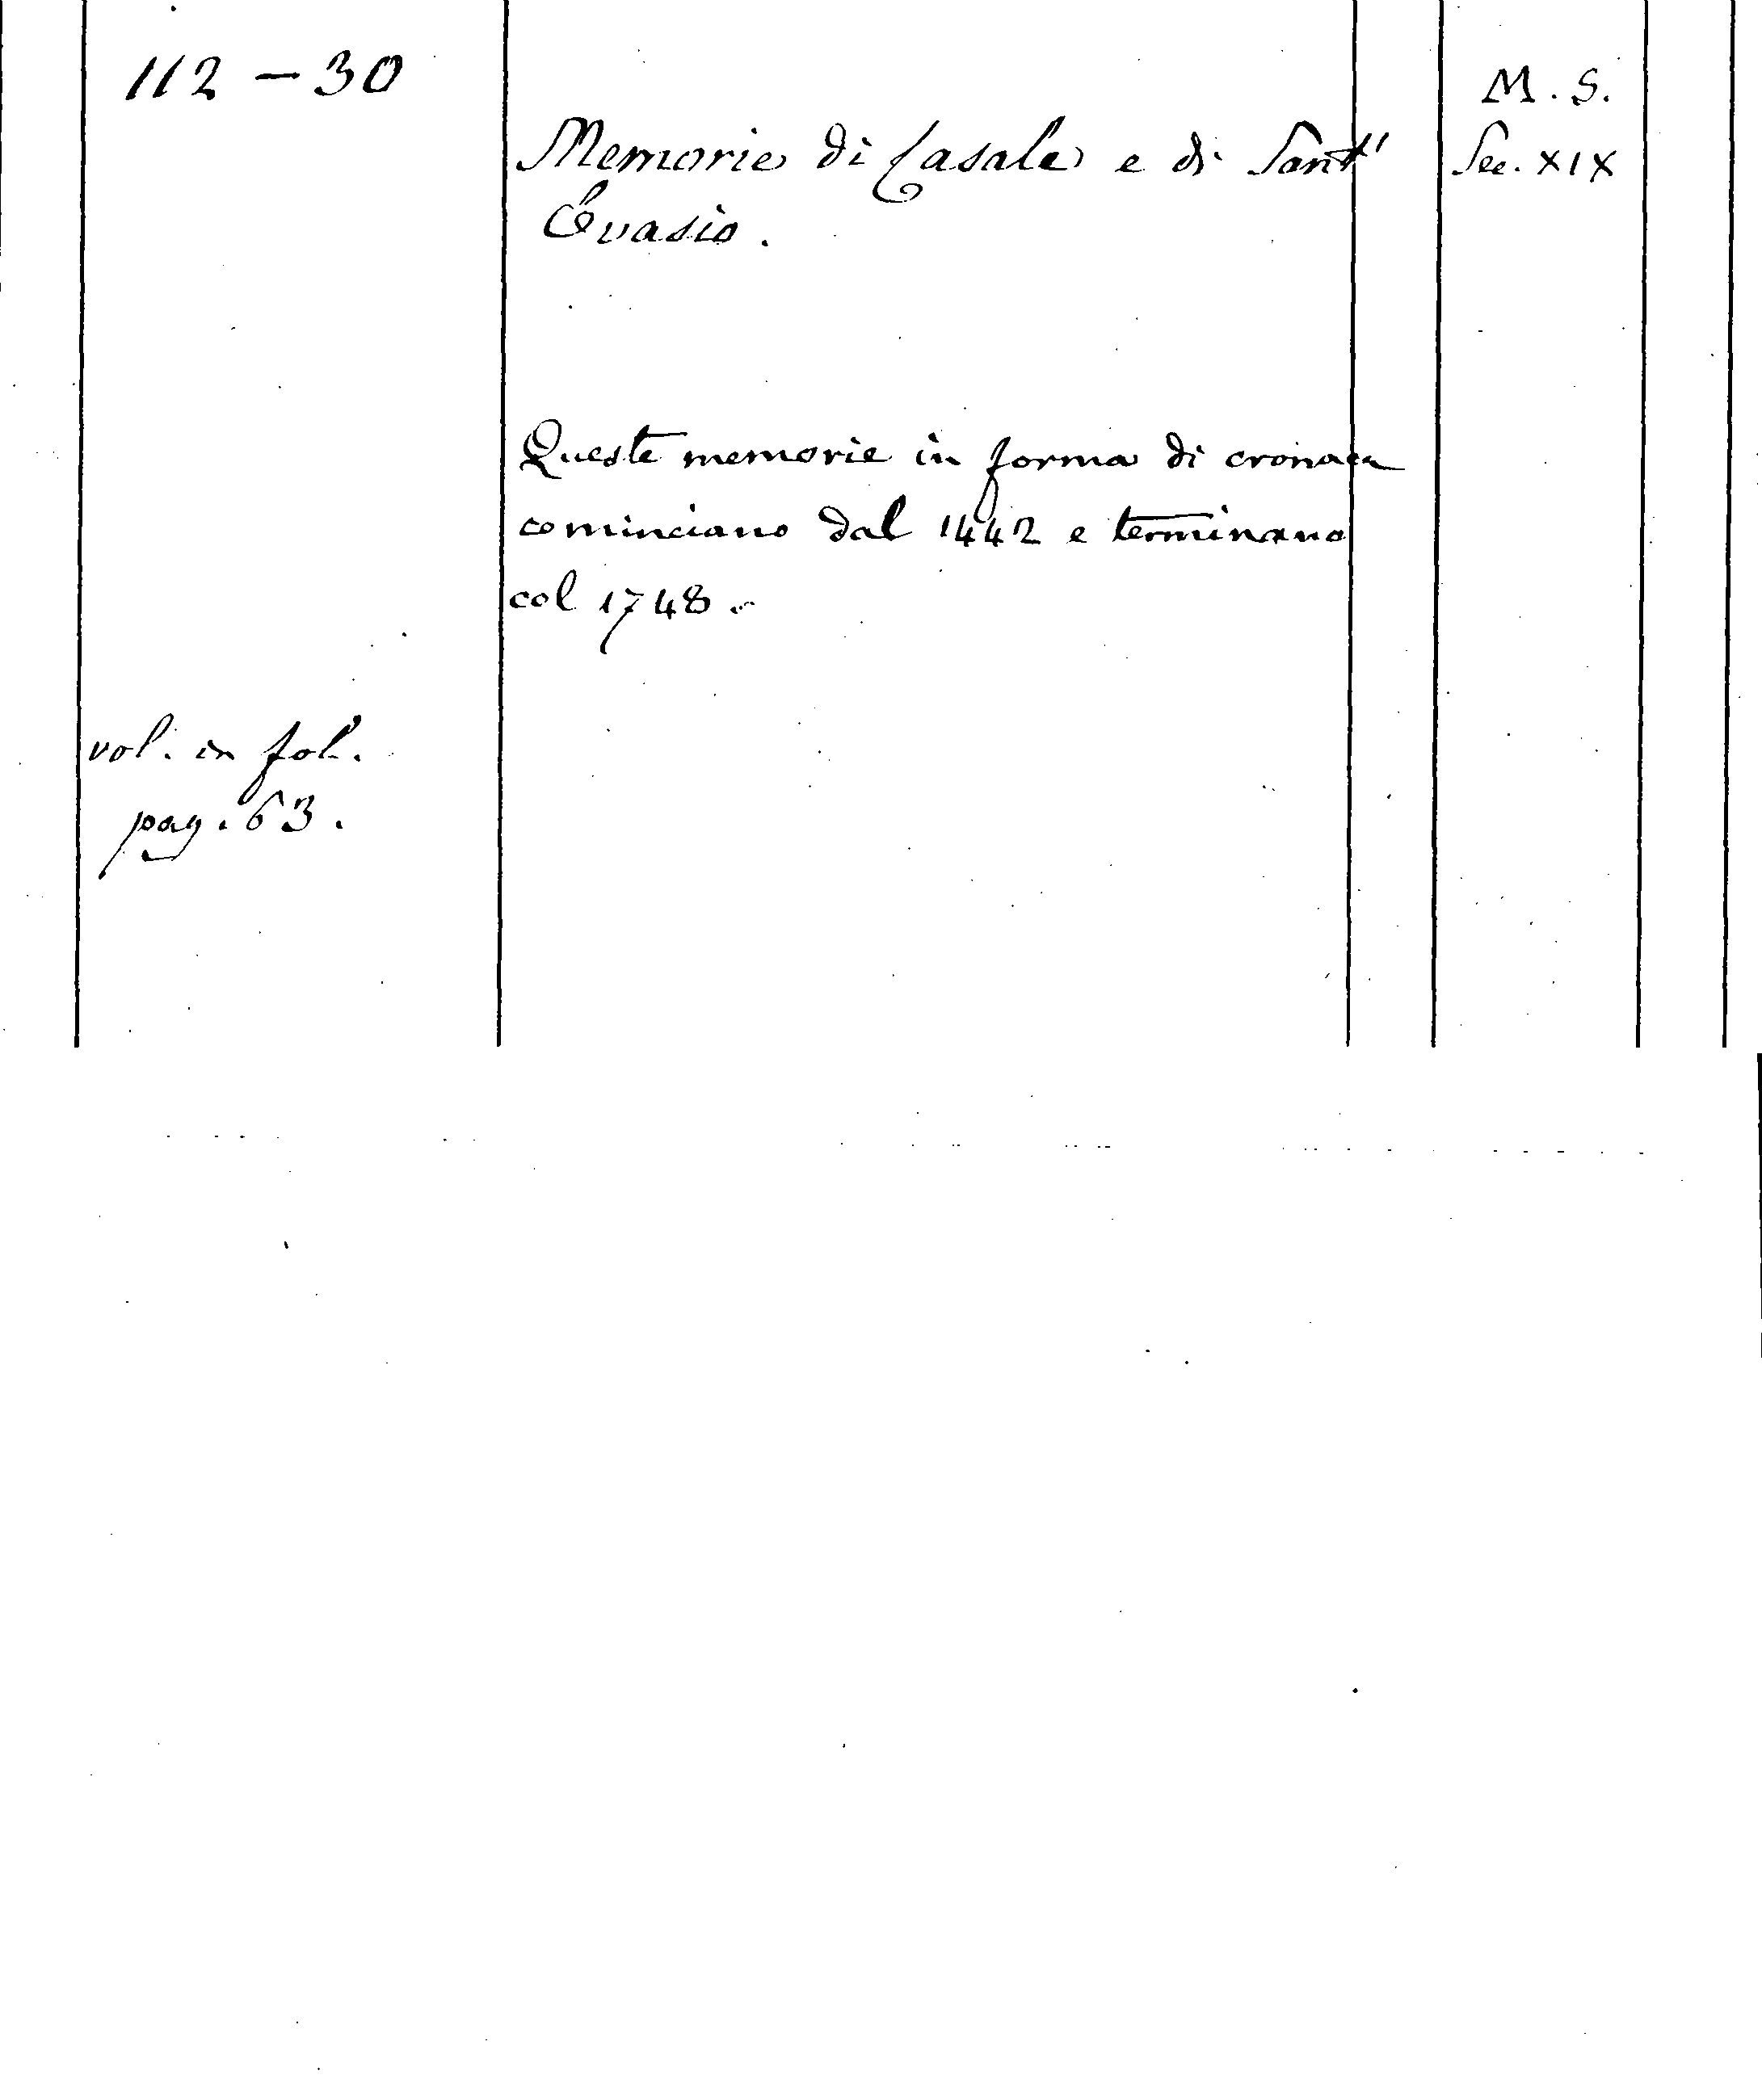 112 - 30
M. S.
Memorie di Casale e di Sant'
Sec. XIX
Evasio.
Queste memorie in forma di cronaca
cominciano dal 1442 e terminano
col 1748.
vol. in fol.
pag. 63.